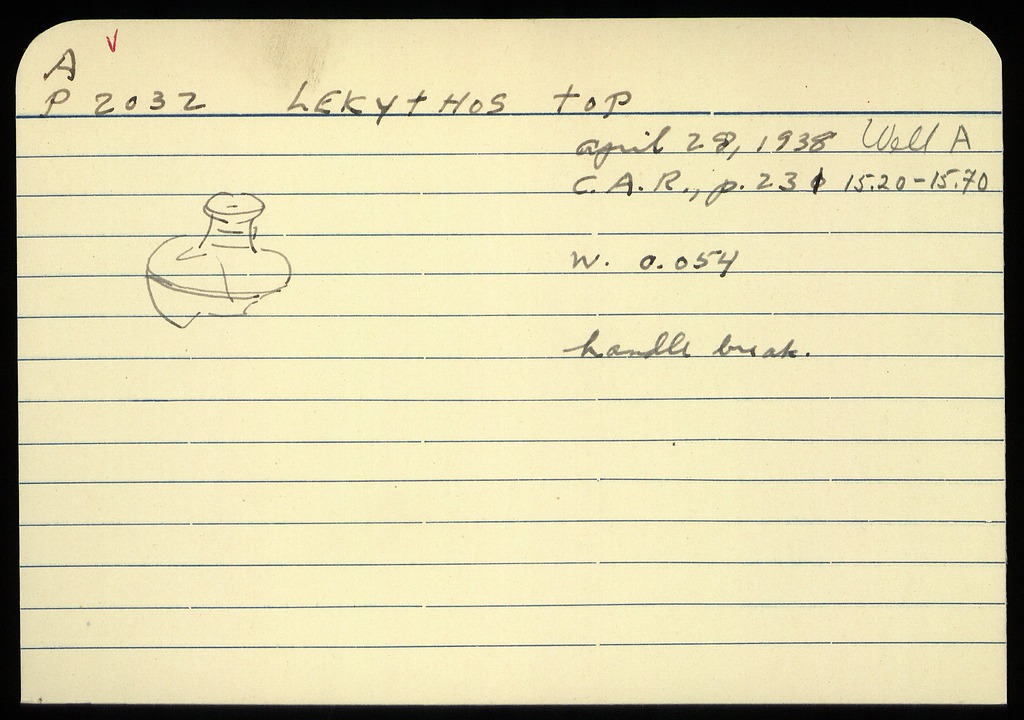 A
P 2032 LEKYTHOS TOP
april 28, 1938 Well A
C.A.R., p. 23 15.20-15.70
W. 0.054
handle break.